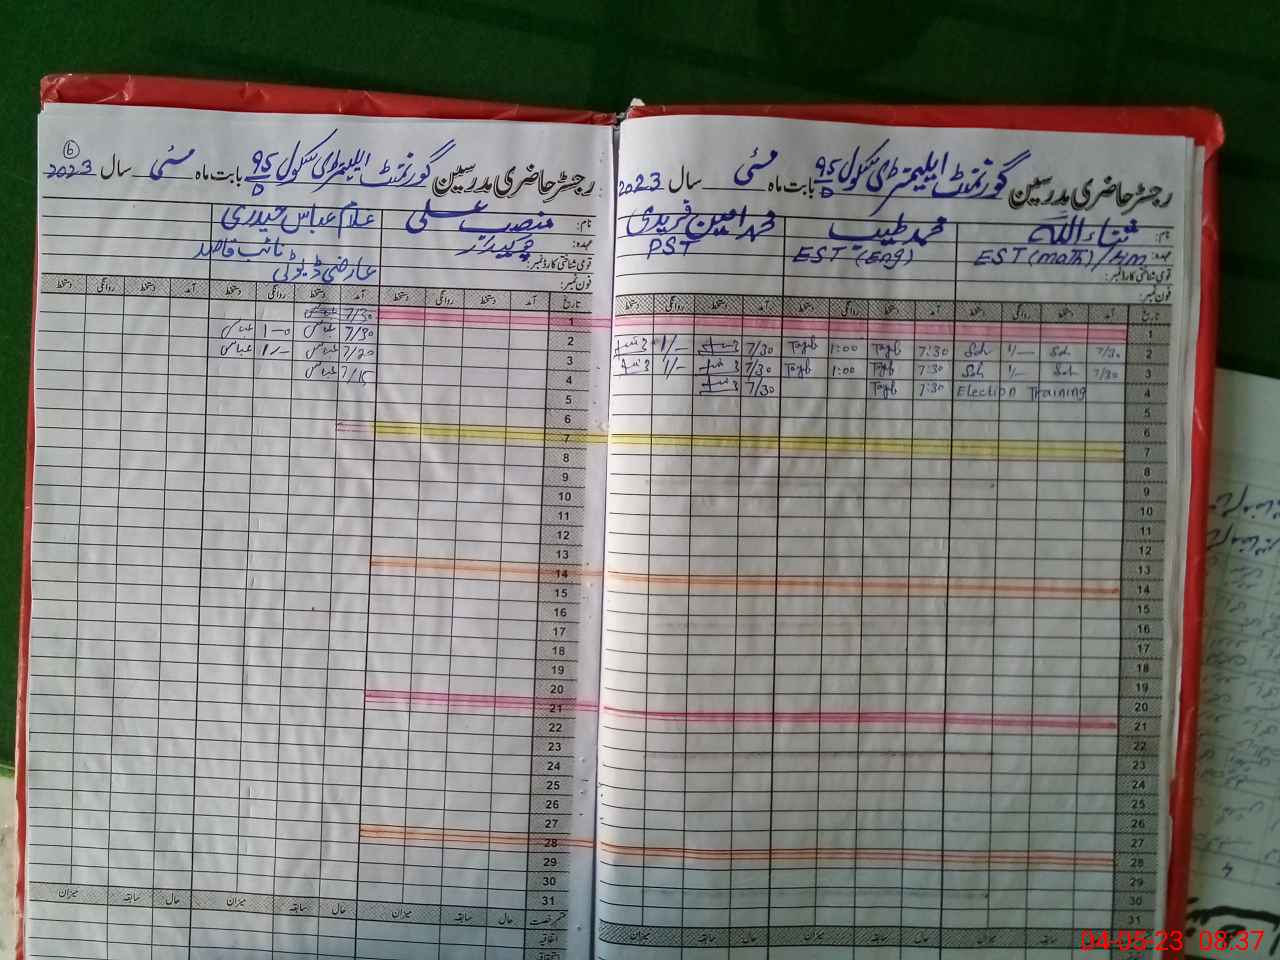 رجسٹر حاضری مدرسین گورنمنٹ ایلیمنٹری سکول 95/D بابت ماہ مئی سال 2023
نام: ثناء اللہ محمد طیب محمد امین فریدی
عہدہ: EST (math) / HM EST (Eng) PST
قومی شناختی کارڈ نمبر:
فون نمبر:
تاریخ آمد دستخط روانگی دستخط آمد دستخط روانگی دستخط آمد دستخط روانگی دستخط
1
2 7/30 Sal 1/- Sal 7:30 Tayb 1:00 Tayb 7/30 1/-
3 7/30 Sal 1/- Sal 7:30 Tayb 1:00 Tayb 7/30 1/-
4 Election Training 7:30 Tayb 7/30
5
6
7
8
9
10
11
12
13
14
15
16
17
18
19
20
21
22
23
24
25
26
27
28
29
30
31
حال سابقہ میزان حال سابقہ میزان
6
رجسٹر حاضری مدرسین گورنمنٹ ایلیمنٹری سکول 95/D بابت ماہ مئی سال 2023
نام: منصب علی غلام عباس حیدری
عہدہ: چوکیدار نائب قاصد
قومی شناختی کارڈ نمبر: عارضی ڈیوٹی
فون نمبر:
تاریخ آمد دستخط روانگی دستخط آمد دستخط روانگی دستخط آمد دستخط روانگی دستخط
1 7/30 عباس
2 7/30 عباس 1-0 عباس
3 7/20 عباس 1/- عباس
4 7/15 عباس
5
6
7
8
9
10
11
12
13
14
15
16
17
18
19
20
21
22
23
24
25
26
27
28
29
30
31
قسم رخصت حال سابقہ میزان حال سابقہ میزان حال سابقہ میزان
اتفاقیہ
04-05-23 08:37